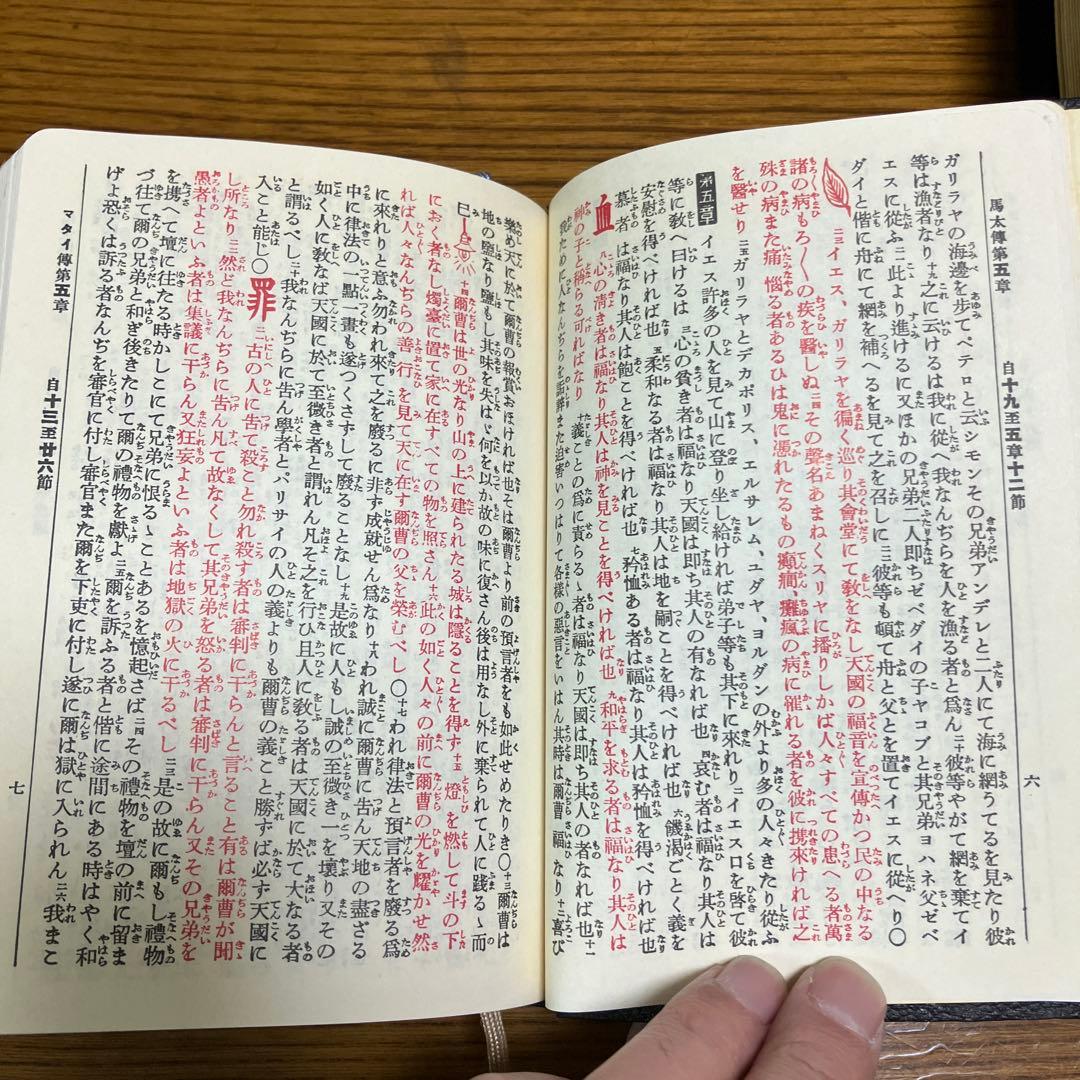 馬太傳第五章　自十九至五章十二節　六
ガリラヤの海邊を歩てペテロと云シモンその兄弟アンデレと二人にて海に網うてるを見たり彼
等は漁者なり十九之に云けるは我に從へ我なんぢらを人を漁る者と爲ん二十彼等やがて網を棄てイ
エスに從ふ二一此より進けるに又ほかの兄弟二人即ちゼベダイの子ヤコブと其兄弟ヨハネ父ゼベ
ダイと偕に舟にて網を補へるを見て之を召しに二二彼等も頓て舟と父とを置てイエスに從へり〇
二三イエス、ガリラヤを徧く巡り其會堂にて教をなし天國の福音を宣傳かつ民の中なる
諸の病もろ〱の疾を醫しぬ二四その聲名あまねくスリヤに播りしかば人々すべての患へる者萬
殊の病また痛 惱る者あるひは鬼に憑れたるもの癲癇、癱瘋の病に罹れる者を彼に携來ければ之
を醫せり二五ガリラヤとデカポリス、エルサレム、ユダヤ、ヨルダンの外より多の人々きたり從ふ
第五章 イエス許多の人を見て山に登り坐し給ければ弟子等も其下に來れり二イエス口を啓て彼
等に教へ曰けるは 三心の貧き者は福なり天國は即ち其人の有なれば也 四哀む者は福なり其人は
安慰を得べければ也 五柔和なる者は福なり其人は地を嗣ことを得べければ也 六饑渇ごとく義を
慕者は福なり其人は飽ことを得べければ也 七矜恤ある者は福なり其人は矜恤を得べければ也
血 八心の清き者は福なり其人は神を見ことを得べければ也 九和平を求る者は福なり其人は
神の子と稱らる可ればなり 十義ことの爲に責らるゝ者は福なり天國は即ち其人の者なれば也十一
我ために人なんぢらを詬誶また迫害いつはりて各樣の惡言をいはん其時は爾曹福なり十二喜び
樂め天に於て爾曹の報賞おほければ也そは爾曹より前の預言者をも如此せめたりき〇十三爾曹は
地の鹽なり鹽もし其味を失はゞ何を以か故の味に復さん後は用なし外に棄られて人に踐るゝ而
巳 十四爾曹は世の光なり山の上に建られたる城は隱ることを得ず十五燈を燃して斗の下
におく者なし燭臺に置て家に在すべての物を照さん十六此の如く人々の前に爾曹の光を耀かせ然
れば人々なんぢらの善行を見て天に在す爾曹の父を榮むべし〇十七われ律法と預言者を廢る爲
に來れりと意ふ勿われ來て之を廢るに非ず成就せん爲なり十八われ誠に爾曹に告ん天地の盡ざる
中に律法の一點一畫も遂つくさずして廢ることなし十九是故に人もし誡の至微き一を壞り又その
如く人に教なば天國に於て至微き者と謂れん凡そ之を行ひ且人に教る者は天國に於て大なる者
と謂るべし二十我なんぢらに告ん學者とパリサイの人の義よりも爾曹の義こと勝ずば必ず天國に
入こと能じ〇罪 二一古の人に告て殺こと勿れ殺す者は審判に干らんと言ること有は爾曹が聞
し所なり二二然ど我なんぢらに告ん凡て故なくして其兄弟を怒る者は審判に干らん又その兄弟を
愚者よといふ者は集議に干らん又狂妄よといふ者は地獄の火に干るべし二三是の故に爾もし禮物
を携へて壇に往たる時かしこにて兄弟に恨るゝことあるを憶起さば二四その禮物を壇の前に留ま
づ往て爾の兄弟と和ぎ後きたりて爾の禮物を獻よ二五爾を訴ふる者と偕に途間にある時はやく和
げよ恐くは訴る者なんぢを審官に付し審官また爾を下吏に付し遂に爾は獄に入られん二六我まこ
マタイ傳第五章　自十三至廿六節　七